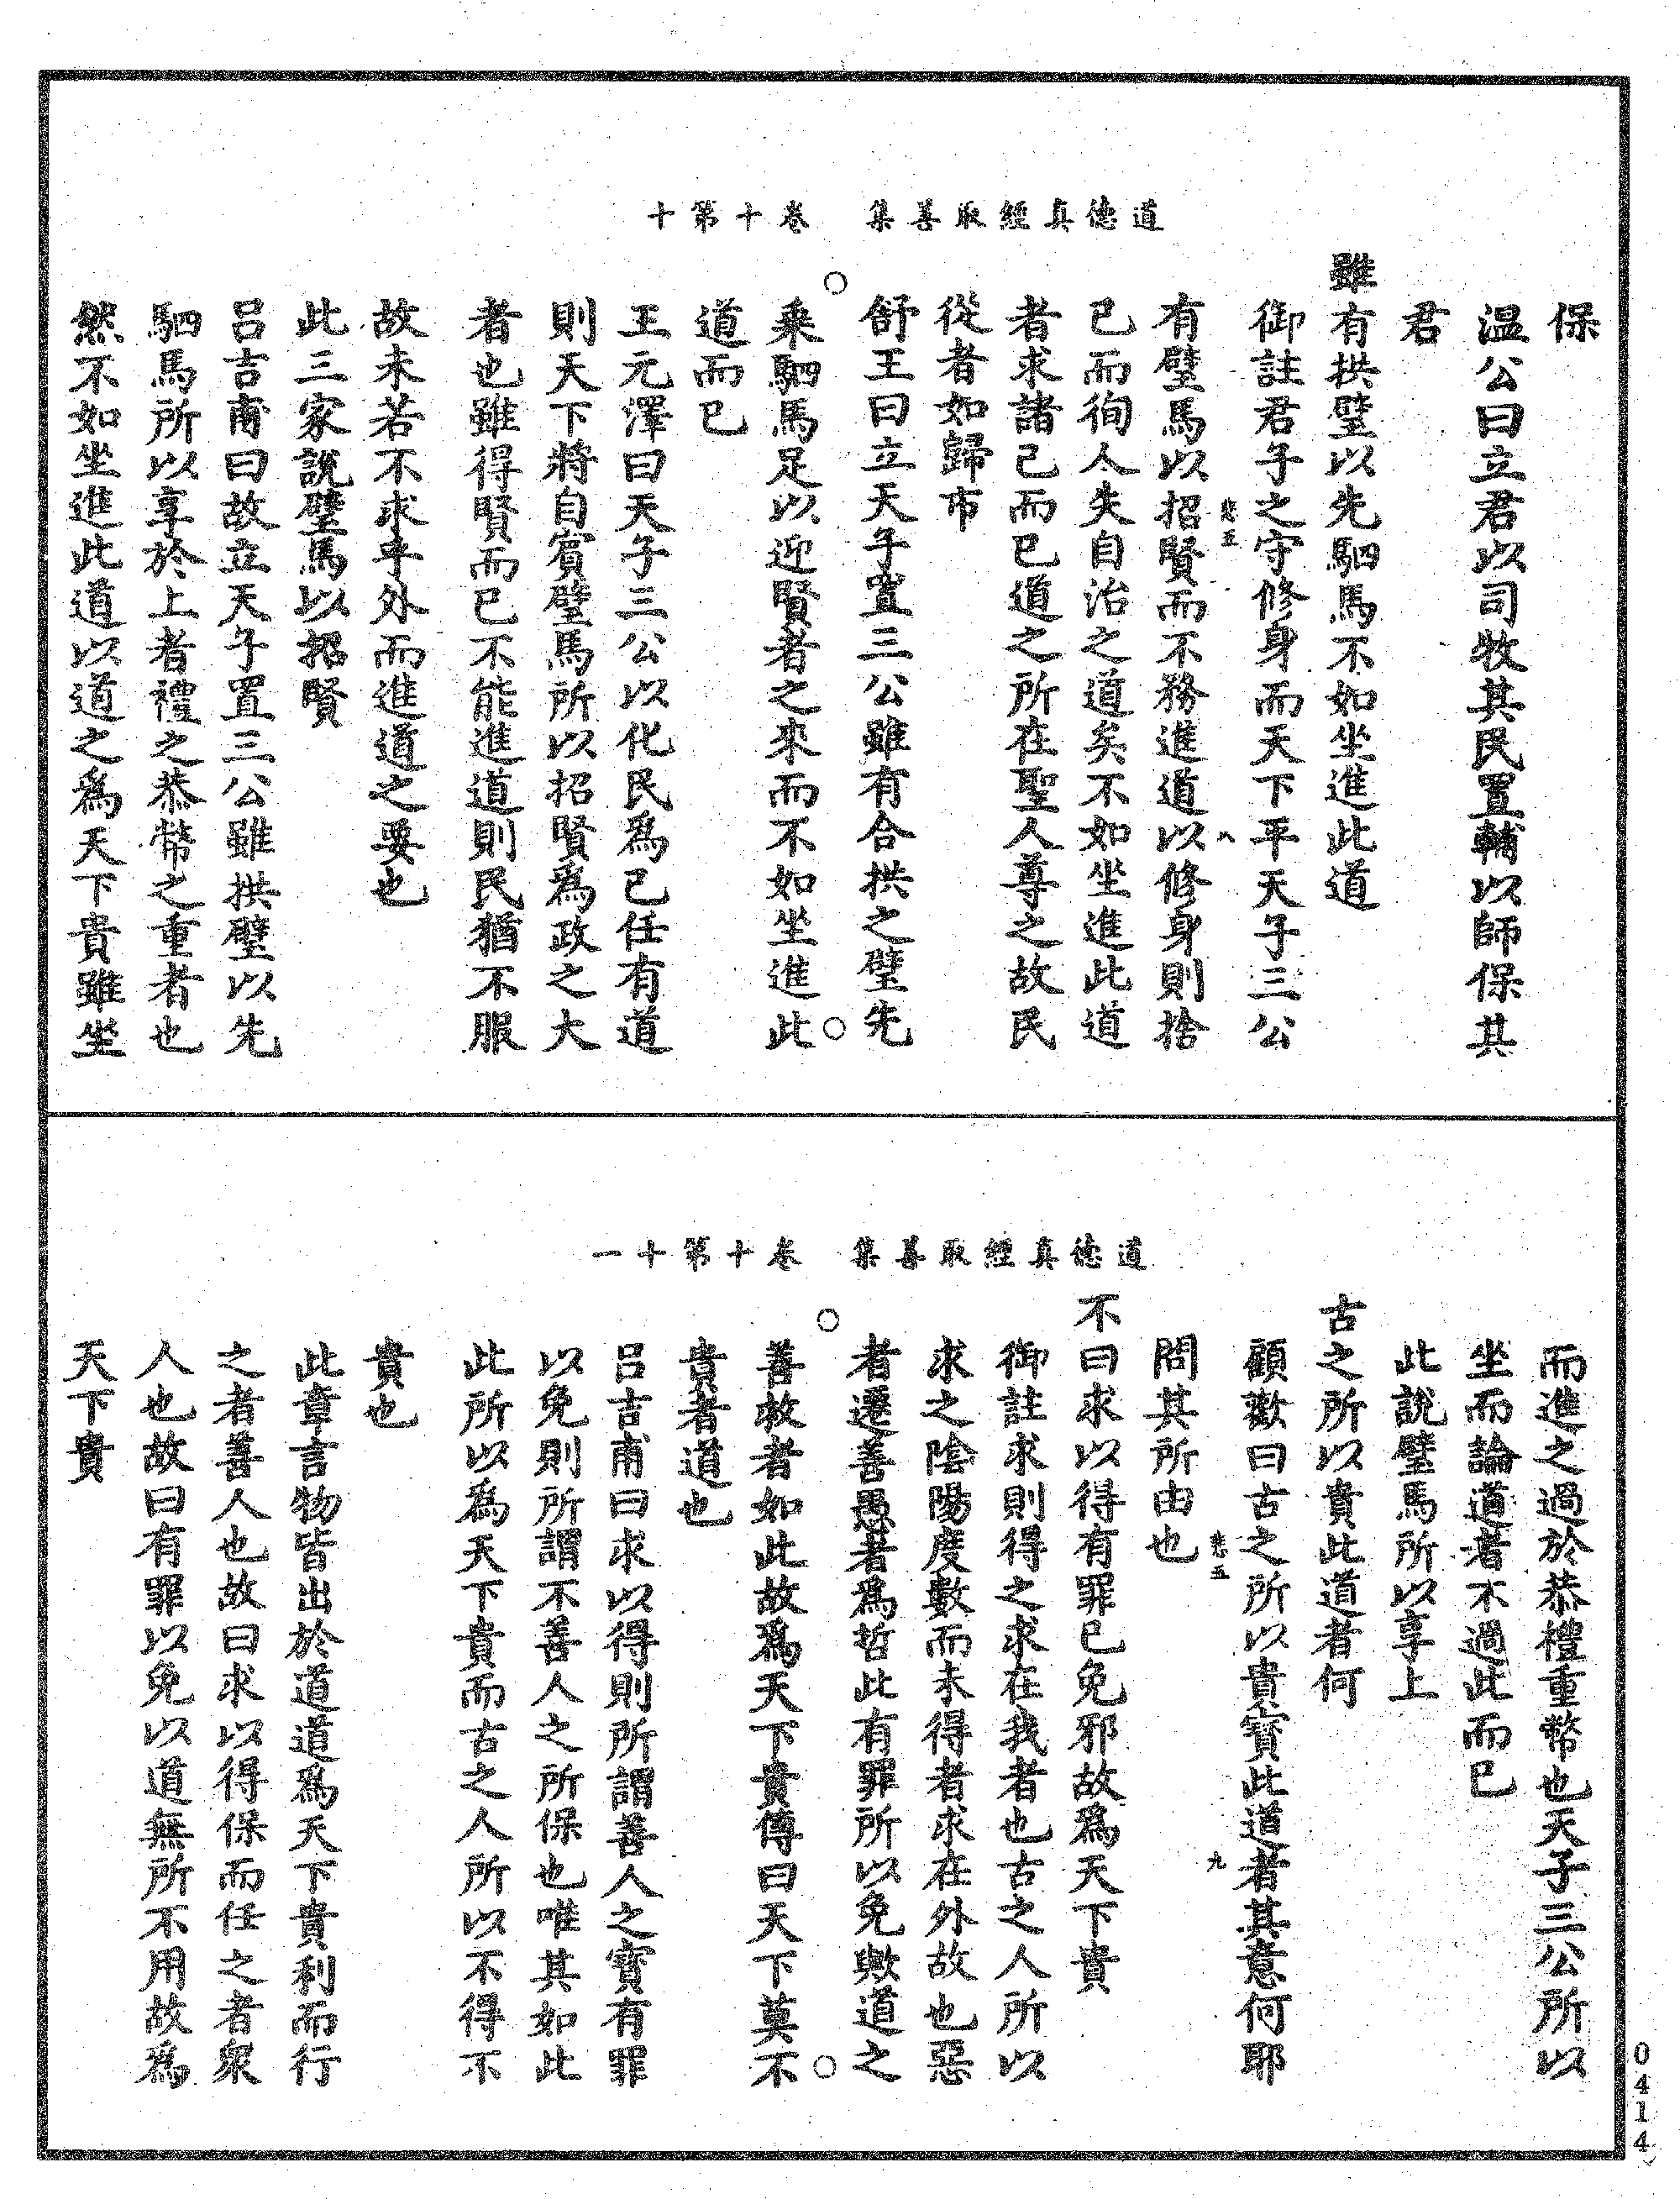 道德真經取善集　卷十第十
保
溫公曰立君以司牧其民置輔以師保其
君
雖有拱璧以先駟馬不如坐進此道
御註君子之守修身而天下平天子三公
悲五　八
有璧馬以招賢而不務進道以修身則捨
已而徇人失自治之道矣不如坐進此道
者求諸己而已道之所在聖人尊之故民
從者如歸市
舒王曰立天子置三公雖有合拱之璧先
乘駟馬足以迎賢者之來而不如坐進此
道而已
王元澤曰天子三公以化民為已任有道
則天下將自賓璧馬所以招賢為政之大
者也雖得賢而已不能進道則民猶不服
故未若不求乎外而進道之要也
此三家說璧馬以招賢
呂吉甫曰故立天子置三公雖拱璧以先
駟馬所以享於上者禮之恭幣之重者也
然不如坐進此道以道之為天下貴雖坐
道德真經取善集　卷十第十一
而進之過於恭禮重幣也天子三公所以
坐而論道者不過此而已
此說璧馬所以享上
古之所以貴此道者何
顧歡曰古之所以貴寶此道者其意何耶
悲五　九
問其所由也
不曰求以得有罪已免邪故為天下貴
御註求則得之求在我者也古之人所以
求之陰陽度數而未得者求在外故也惡
者遷善愚者為哲此有罪所以免歟道之
善救者如此故為天下貴傳曰天下莫不
貴者道也
呂吉甫曰求以得則所謂善人之寶有罪
以免則所謂不善人之所保也唯其如此
此所以為天下貴而古之人所以不得不
貴也
此章言物皆出於道道為天下貴利而行
之者善人也故曰求以得保而任之者衆
人也故曰有罪以免以道無所不用故為
天下貴
0414